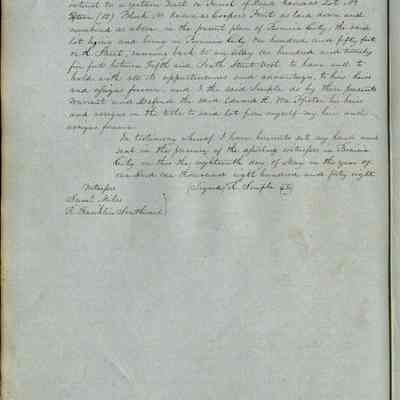 interest to a certain tract or Parcel of land known as Lot No
fifteen (15) Block No known as Coopers Front as laid down and
numbered as above in the present plan of Benicia City, the said
lot lying and being in Benicia City One hundred and fifty feet
on H Street, running back to an Alley One hundred and twenty
five feet between Fifth and Sixth Street West to have and to
hold with all its appurtenances and advantages, to his heirs
and assigns forever, and I the said Semple do by these presents
Warrant and Defend the said Edward H. his heirs
and assigns in the title to said lot from myself my heirs and
assigns forever
In testimony whereof I have hereunto set my hand and
seal in the presence of the witnesses in Benicia
City on this the eighteenth day of May in the year of
one thousand eight hundred and forty eight
Witnesses (Signed) R. Semple
Saml Miles
R. Franklin Southward